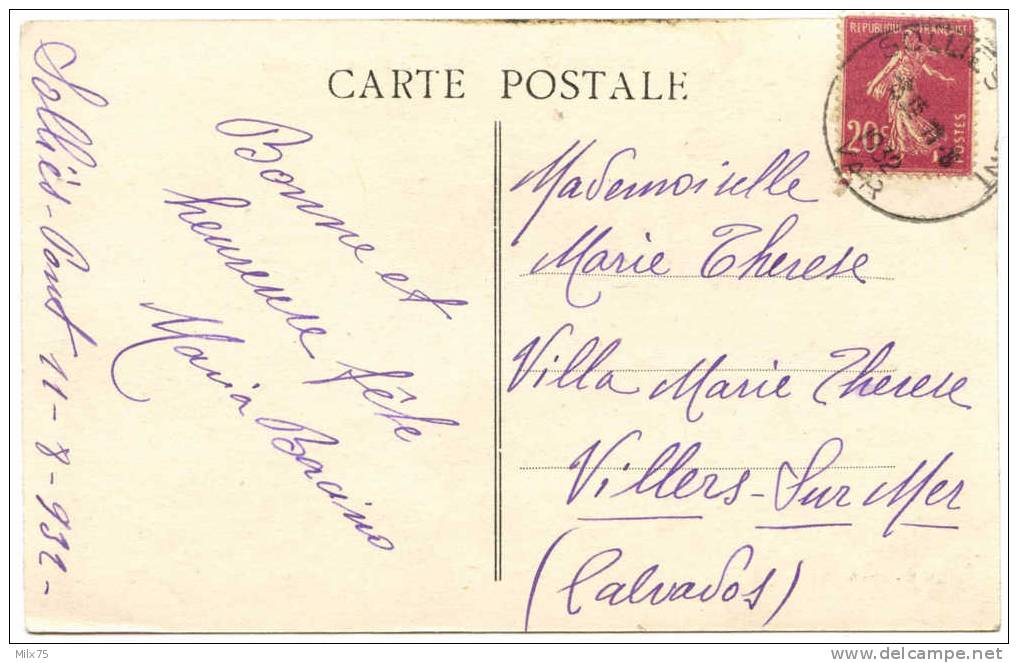 CARTE POSTALE
Solliès-Pont 11-8-932-
Bonne et
heureuse fête
Maria
Mademoiselle
Marie Therese
Villa Marie Therese
Villers-Sur Mer
(Calvados)
REPUBLIQUE FRANÇAISE
20c
POSTES
SOLLIES
1932
VAR
Milx75
www.delcampe.net